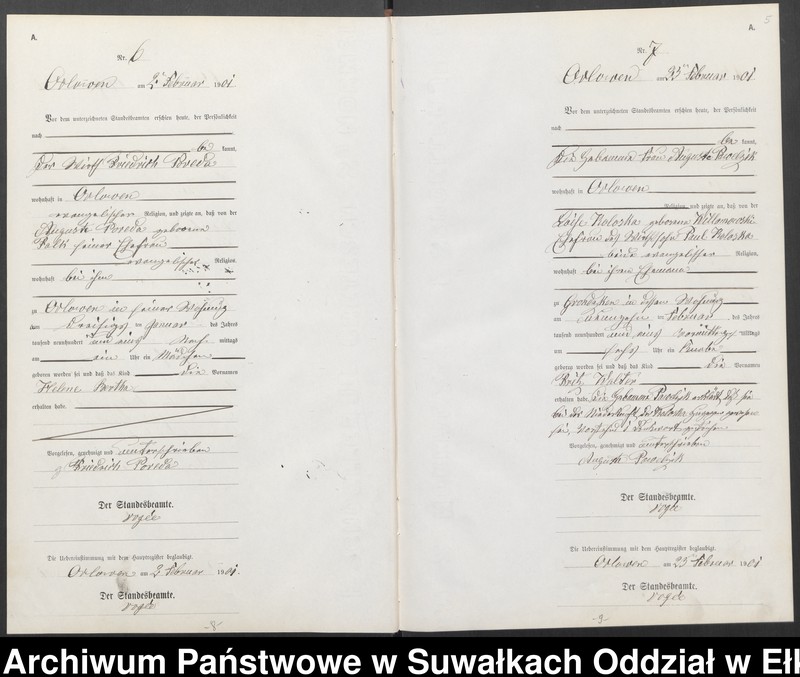 A.
Nr. 6
Orlowen am 2ten Februar 1901
Vor dem unterzeichneten Standesbeamten erschien heute, der Persönlichkeit
nach
be kannt,
Der Wirth Friedrich Poreda
wohnhaft in Orlowen
evangelischer Religion, und zeigte an, daß von der
Auguste Poreda geborene
seiner Ehefrau
evangelischer Religion,
wohnhaft bei ihm
zu Orlowen in seiner Wohnung
am dreißigsten Januar des Jahres
tausend neunhundert und eins Nach mittags
um ein Uhr ein Mädchen
geboren worden sei und daß das Kind die Vornamen
Helene Bertha
erhalten habe.
Vorgelesen, genehmigt und unterschrieben
Friedrich Poreda
Der Standesbeamte.
Vogée
Die Uebereinstimmung mit dem Hauptregister beglaubigt.
Orlowen am 2 Februar 1901.
Der Standesbeamte.
Vogée
-8-
5
A.
Nr. 7
Orlowen am Februar 1901.
Vor dem unterzeichneten Standesbeamten erschien heute, der Persönlichkeit
nach
be kannt,
Die Hebamme Frau Auguste
wohnhaft in Orlowen
Religion, und zeigte an, daß von der
Koloska geborene
Ehefrau des Paul Koloska
beide evangelischer Religion,
wohnhaft bei ihrem Ehemann
zu in dessen Wohnung
am Februar des Jahres
tausend neunhundert und eins Vormittags mittags
um sechs Uhr ein Knabe
geboren worden sei und daß das Kind die Vornamen
Fritz Walter
erhalten habe. Die Hebamme erklärt, daß sie
bei der Niederkunft der Koloska zugegen gewesen
sei.
Vorgelesen, genehmigt und unterschrieben
Auguste
Der Standesbeamte.
Vogée
Die Uebereinstimmung mit dem Hauptregister beglaubigt.
Orlowen am Februar 1901
Der Standesbeamte.
Vogée
-9-
Archiwum Państwowe w Suwałkach Oddział w Ełk